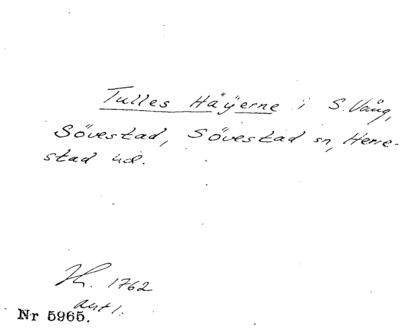 Tulles Häÿerne i S. Vång,
Sövestad, Sövestad sn, Herre-
stad hd.
H. 1762
akt 1.
Nr 5965.